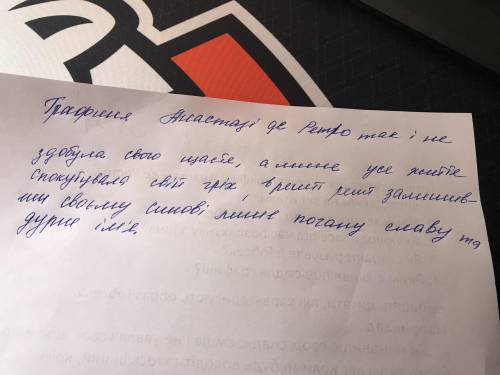 Графиня Анастазі де Ресто так і не
здобула свого щастя, а лише усе життя
спокутувала свій гріх, врешті решт залишив-
ши своєму синові лише погану славу та
дурне ім'я.